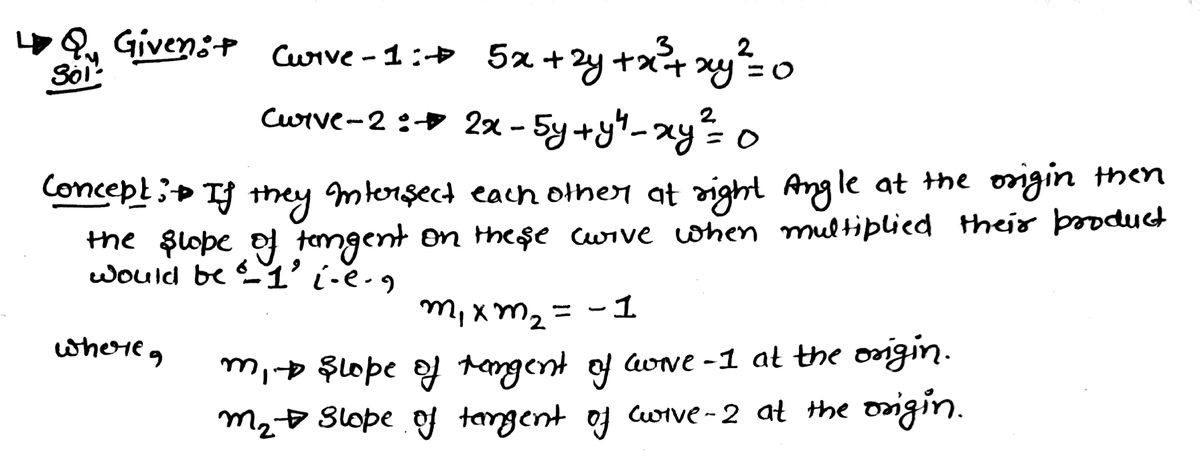 ↳ Q, Given:→ Curve-1:→ 5x + 2y + x³ + xy² = 0
Sol:-
Curve-2:→ 2x - 5y + y⁴ - xy² = 0
Concept:→ If they intersect each other at right Angle at the origin then
the slope of tangent on these curve when multiplied their product
would be '-1' i.e.,
m₁ × m₂ = -1
where, m₁ → Slope of tangent of curve-1 at the origin.
m₂ → Slope of tangent of curve-2 at the origin.